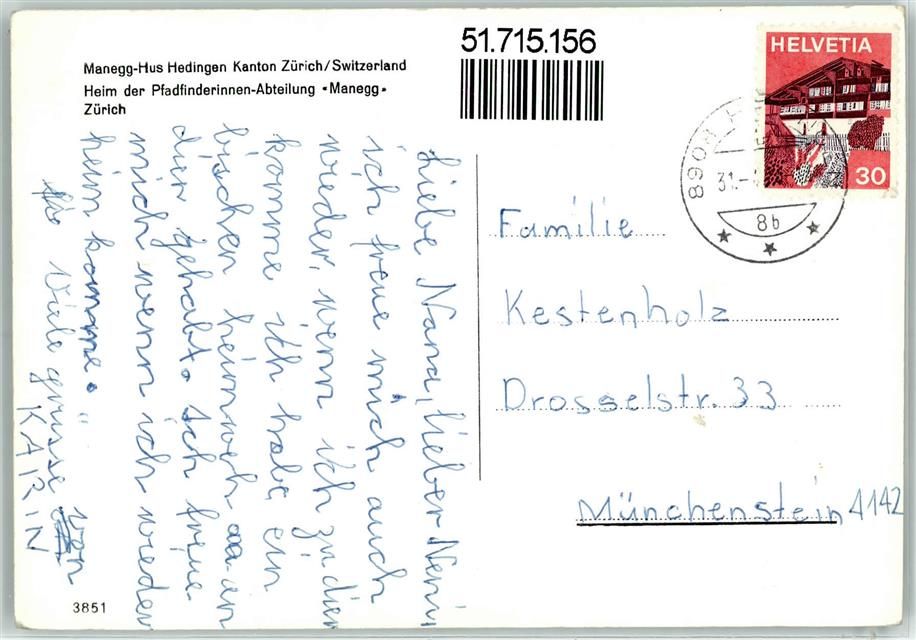 51.715.156
Manegg-Hus Hedingen Kanton Zürich/Switzerland
Heim der Pfadfinderinnen-Abteilung «Manegg»
Zürich
HELVETIA
30
8908
31.
8b
Liebe Nana, lieber Neni
ich freue mich auch
wieder, wenn ich zu dir
komme ich habe ein
bischen heimweh an
dir gehabt. Ich freue
mich wenn ich wieder
heim komme.
Viele grüsse von
KARIN
Familie
Kestenholz
Drosselstr. 33
Münchenstein 4142
3851